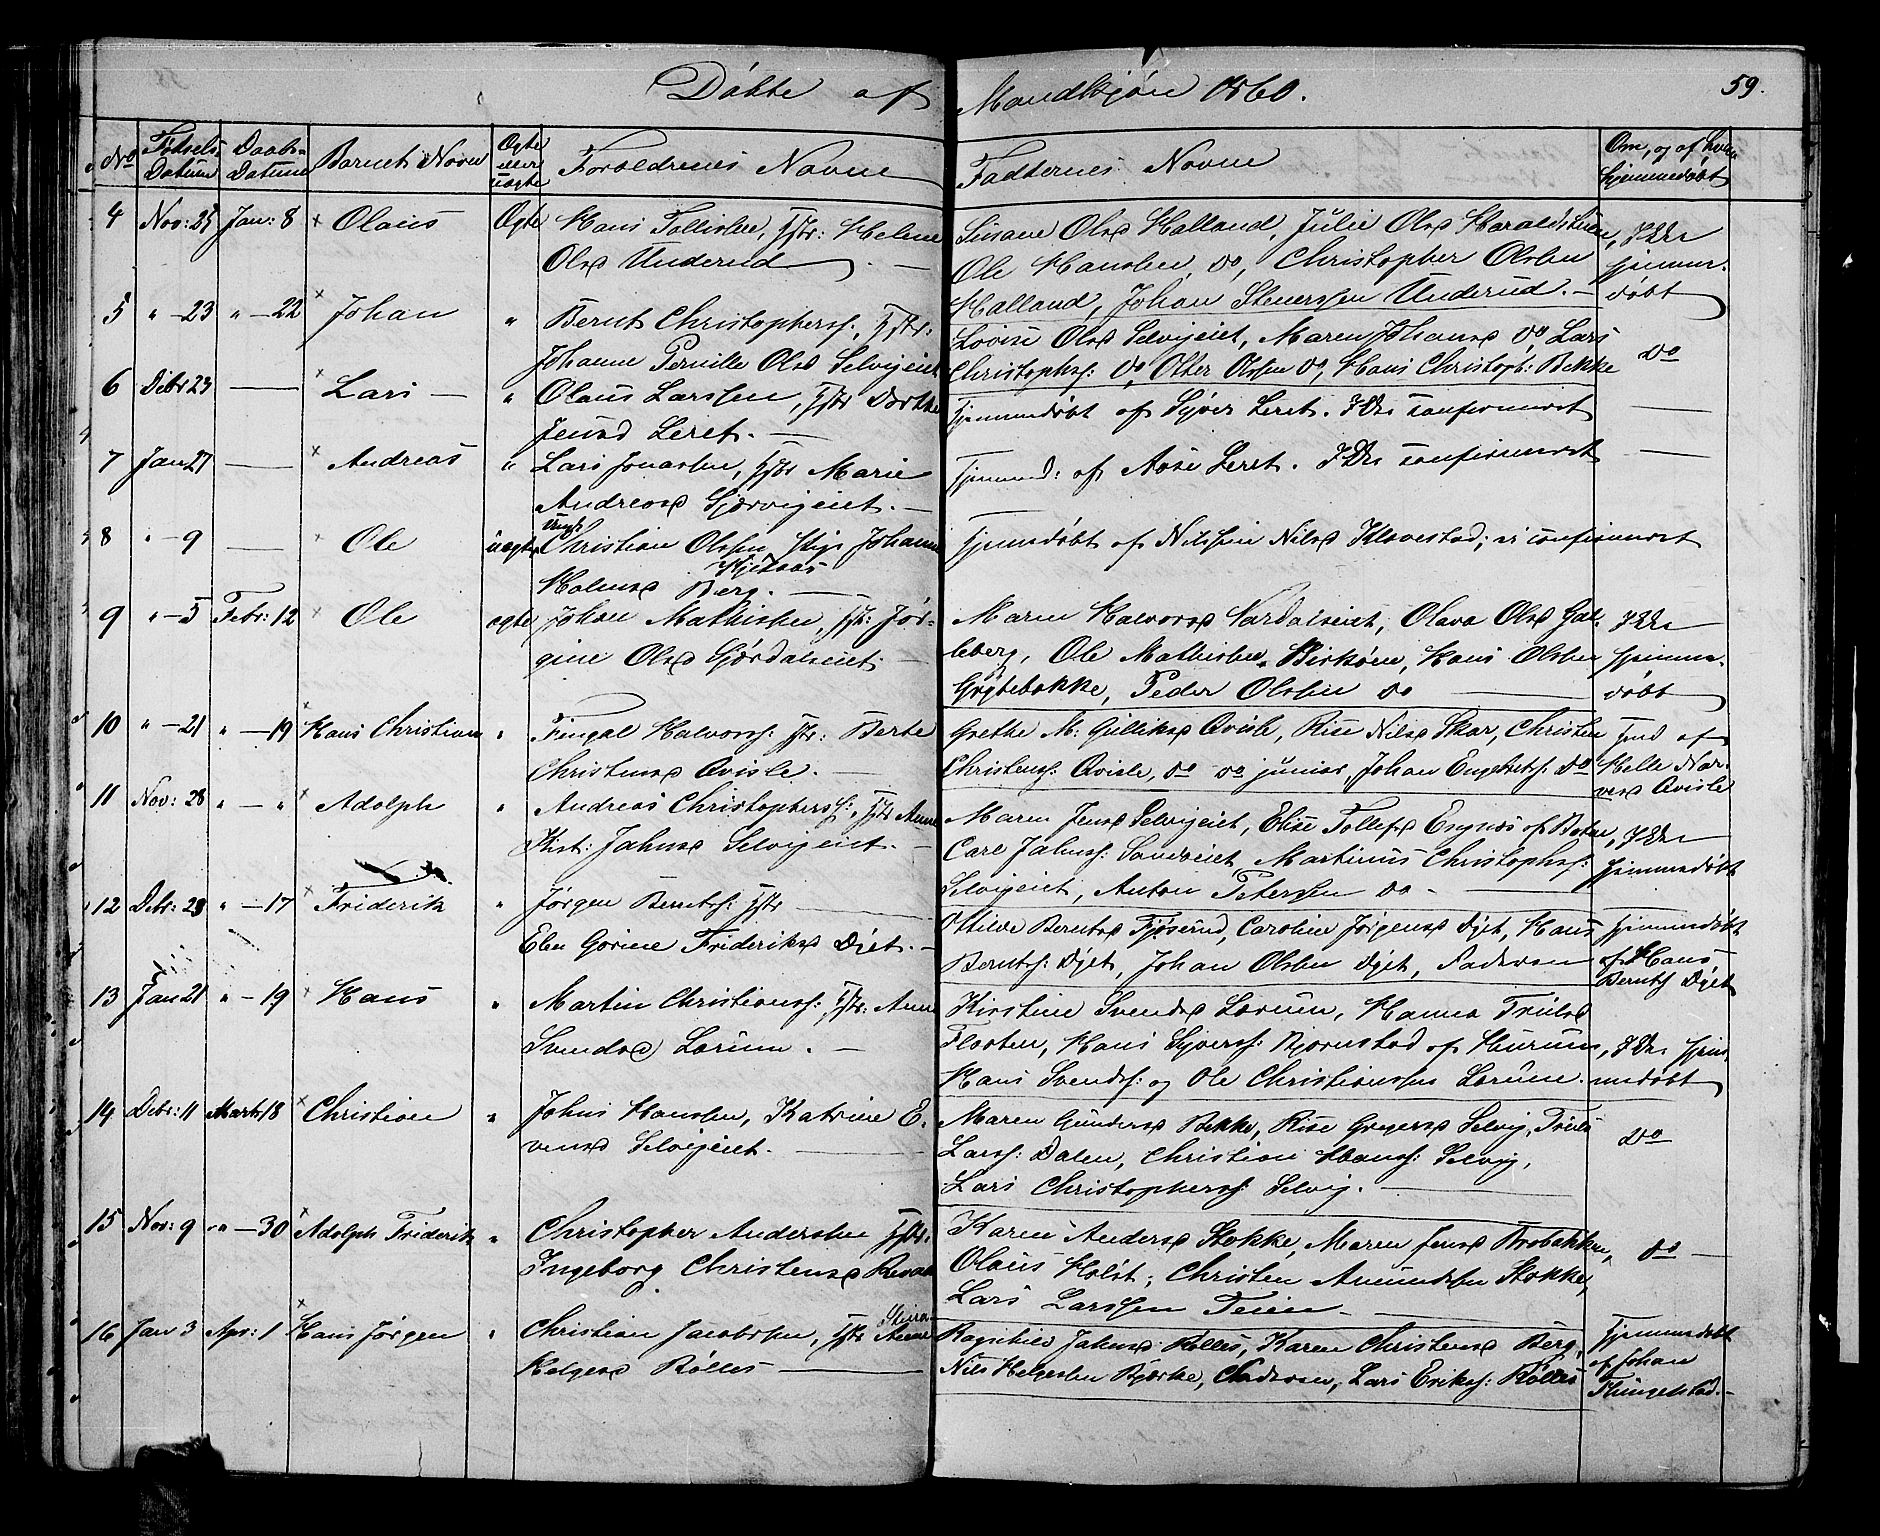 Døbte af Mandkjøn 1860. 59.
No Fødsels Datum Daabs- Datum Barnets Navn Ægte eller uægte Forældrenes Navne Fadernes Navne Om, og af hvem hjemmedøbt
4 Nov: 25 Jan: 8 × Olaus Ægte Hans Tollefsen, Hstr: Helene
Olsd Underud
Susane Olsd Halland, Julie Olsd Haraldstuen, Ikke
Ole Hansen do, Christopher Olsen hjemme-
Halland, Johan Steenssen Underud. døbt
5 " -23 " -22 × Johan " Bernt Christophers:, Hstr:
Johanne Pernille Olsd Selvigeiet
Lovise Olsd Selvigeiet, Maren Johansd do Lars
Christophs: do, Otter Olsen do, Hans Christoph: Bekke do
6 Debr 23 — × Lars — " Olaus Larssen, Hstr Dorthe
Jensd Leret.
Hjemmedøbt af Syver Leret. Ikke confirmeret
7 Jan 27 — × Andreas " Lars Jonassen, Hstr Marie
Andreasd Gjervigeiet.
Hjemmed: af Aase Leret. Ikke confirmeret
8 " -9 — × Ole uægte Ungk Christian Olssen Pige Johanne
Hansd Berg.
Hjemmedøbt af Nilssine Nilsd Klovestad; ei confirmeret
9 " -5 Febr: 12 × Ole ægte Johan Mathissen, Hstr: Jør-
gine Olsd Gjerdalseiet
Maren Halvorsd Vardalseiet, Olava Olsd Gal- Ikke
leberg, Ole Mathissen Birkøen, Hans Olsen hjemme-
Grytebakke, Peder Olssen do døbt
10 " -21 " -19 × Hans Christian " Fingal Halvors: Hstr: Berte
Christensd Qvisle.
Grethe M: Gulliksd Qvisle, Rise Nilsd Skar, Christen Hjmd af
Christens: Qvisle, do do junior, Johan Engebrets: do Helle Nar-
vesd Qvisle
11 Nov: 28 " - " × Adolph " Andreas Christophers:, Hstr Anne
Kirst: Jahnsd Selvigeiet.
Maren Jensd Selvigeiet, Elise Tollefsd Engnæs af Botne, Ikke
Carl Jahns: Sandseiet, Martinus Christophs: hjemmedøbt
Selvigeiet, Anton Petersen do -
12 Debr: 28 " -17 × Friderik " Jørgen Bernts: Hstr
Elen Gorine Frideriksd Dyet. -
Ottilde Berntsd Fjøserud, Caroline Jørgensd Dyet, Hans Hjemmedøbt
Bernts: Dyet, Johan Olsen Dyet, Faderen af Hans
Bernts Dyet
13 Jan 21 " -19 × Hans " Martin Christians: Hstr: Anne
Svendsd Lorum.
Kirstine Svendsd Lorum, Hanna Trulsd
Floaten, Hans Syvers: Bjørnstad af Hurum, Ikke hjem-
Hans Svends: og Ole Christianssen Lorum. medøbt
14 Debr: 11 Marts 18 × Christian " Johns Hanssen, Katrine E-
vensd Selvigeiet.
Maren Gundersd Bekke, Rise Gregersd Selvig, Truls
Larss: Dalen, Christian Hans: Selvig, do
Lars Christophers: Selvig.
15 Nov: 9 " -30 × Adolph Friderik " Christopher Anderssen Hstr:
Ingeborg Christensd Revaa
Karen Andersd Stokke, Maren Jensd Brobakken,
Olaus Holst, Christen Amundsen Stokke, do
Lars Larssen Teien
16 Jan 3 Apr: 1 × Hans Jørgen " Christian Jacobsen, Hstr Anne
Helgesd Bølles
Ragnhild Jahnsd Rolles, Karen Christensd Berg, Hjemmedøbt
Nils Helgessen Bjerke, Faderen, Lars Eriks: Rolles af Johan
Klungelstad.